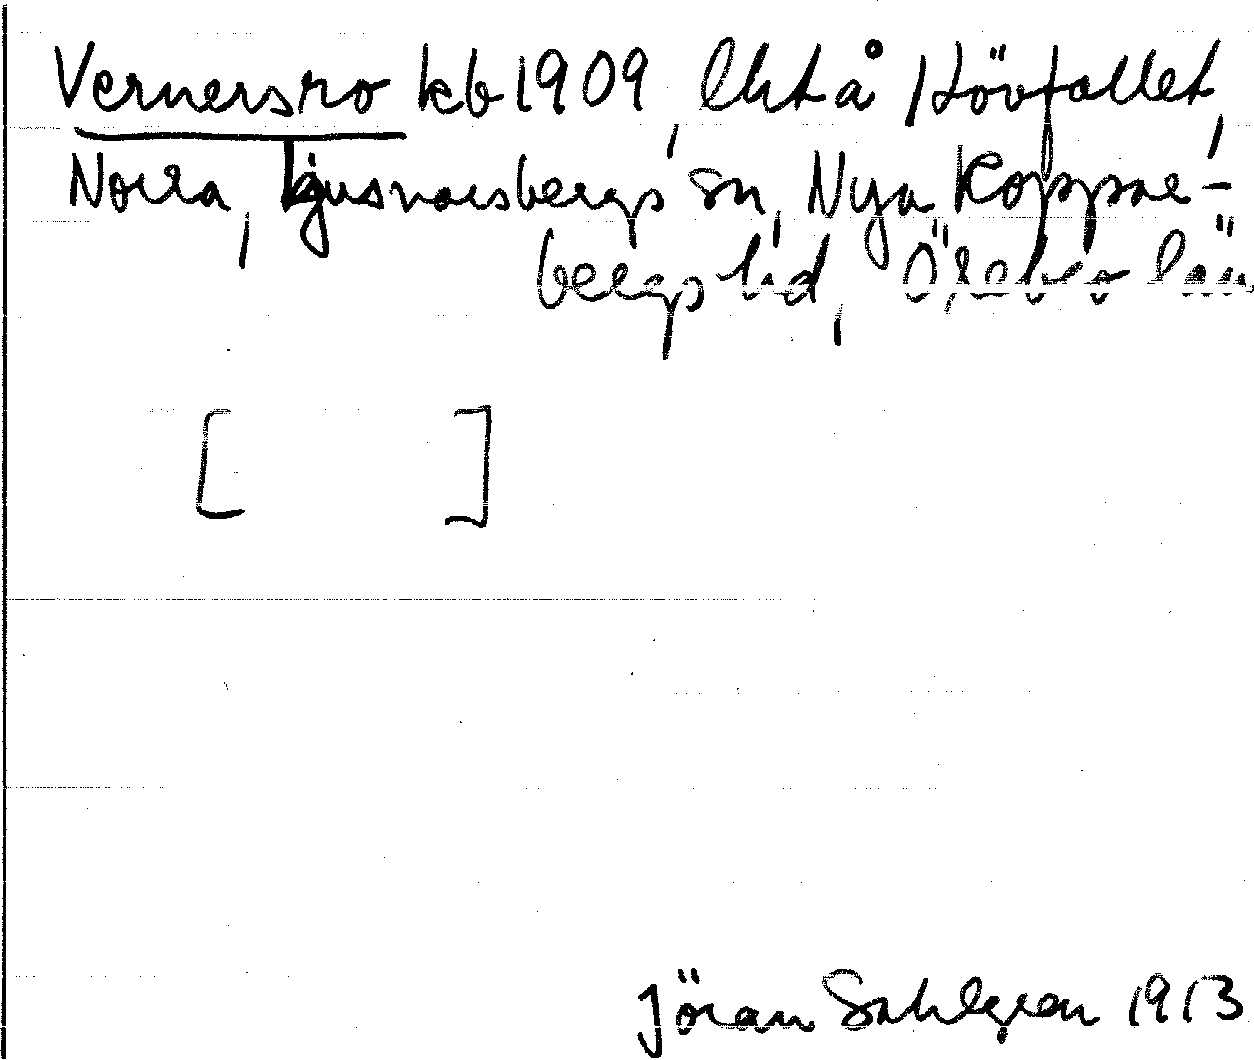 Vernersro kb 1909, lht å Hövfallet,
Norra, Ljusnarsbergs sn, Nya Koppar-
bergs hd, Örebro län
[ ]
Jöran Sahlgren 1913